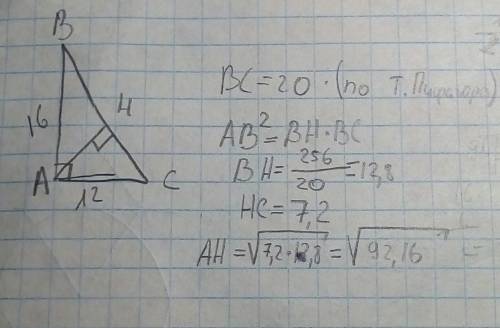 B
16
H
A
12
C
BC = 20 · (по т. Пифагора)
AB² = BH · BC
BH = 256/20 = 12,8
HC = 7,2
AH = √7,2 · 12,8 = √92,16 =